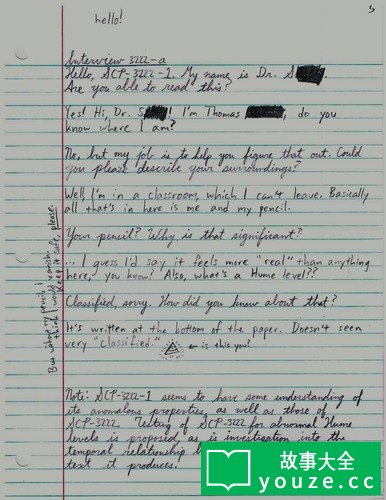 5
hello!
Interview 3222-a
Hello, SCP-3222-1. My name is Dr. S
Are you able to read this?
Yes! Hi, Dr. S ! I'm Thomas , do you
know where I am?
No, but my job is to help you figure that out. Could
you please describe your surroundings?
Well, I'm in a classroom, which I can't leave. Basically
all that's in here is me and my pencil.
Your pencil? Why is that significant?
... I guess I'd say it feels more "real" than anything
here, you know? Also, what's a Hume level??
Classified, sorry. How did you know about that?
It's written at the bottom of the paper. Doesn't seem
very "classified." ← is this you?
But without my pencil, I
think I would vanish.
keep it safe, please.
Note: SCP-3222-1 seems to have some understanding of
its anomalous properties, as well as those of
SCP-3222. Testing of SCP-3222 for abnormal Hume
levels is proposed, as is investigation into the
temporal relationship
text it produces.
故事大全
youze.cc